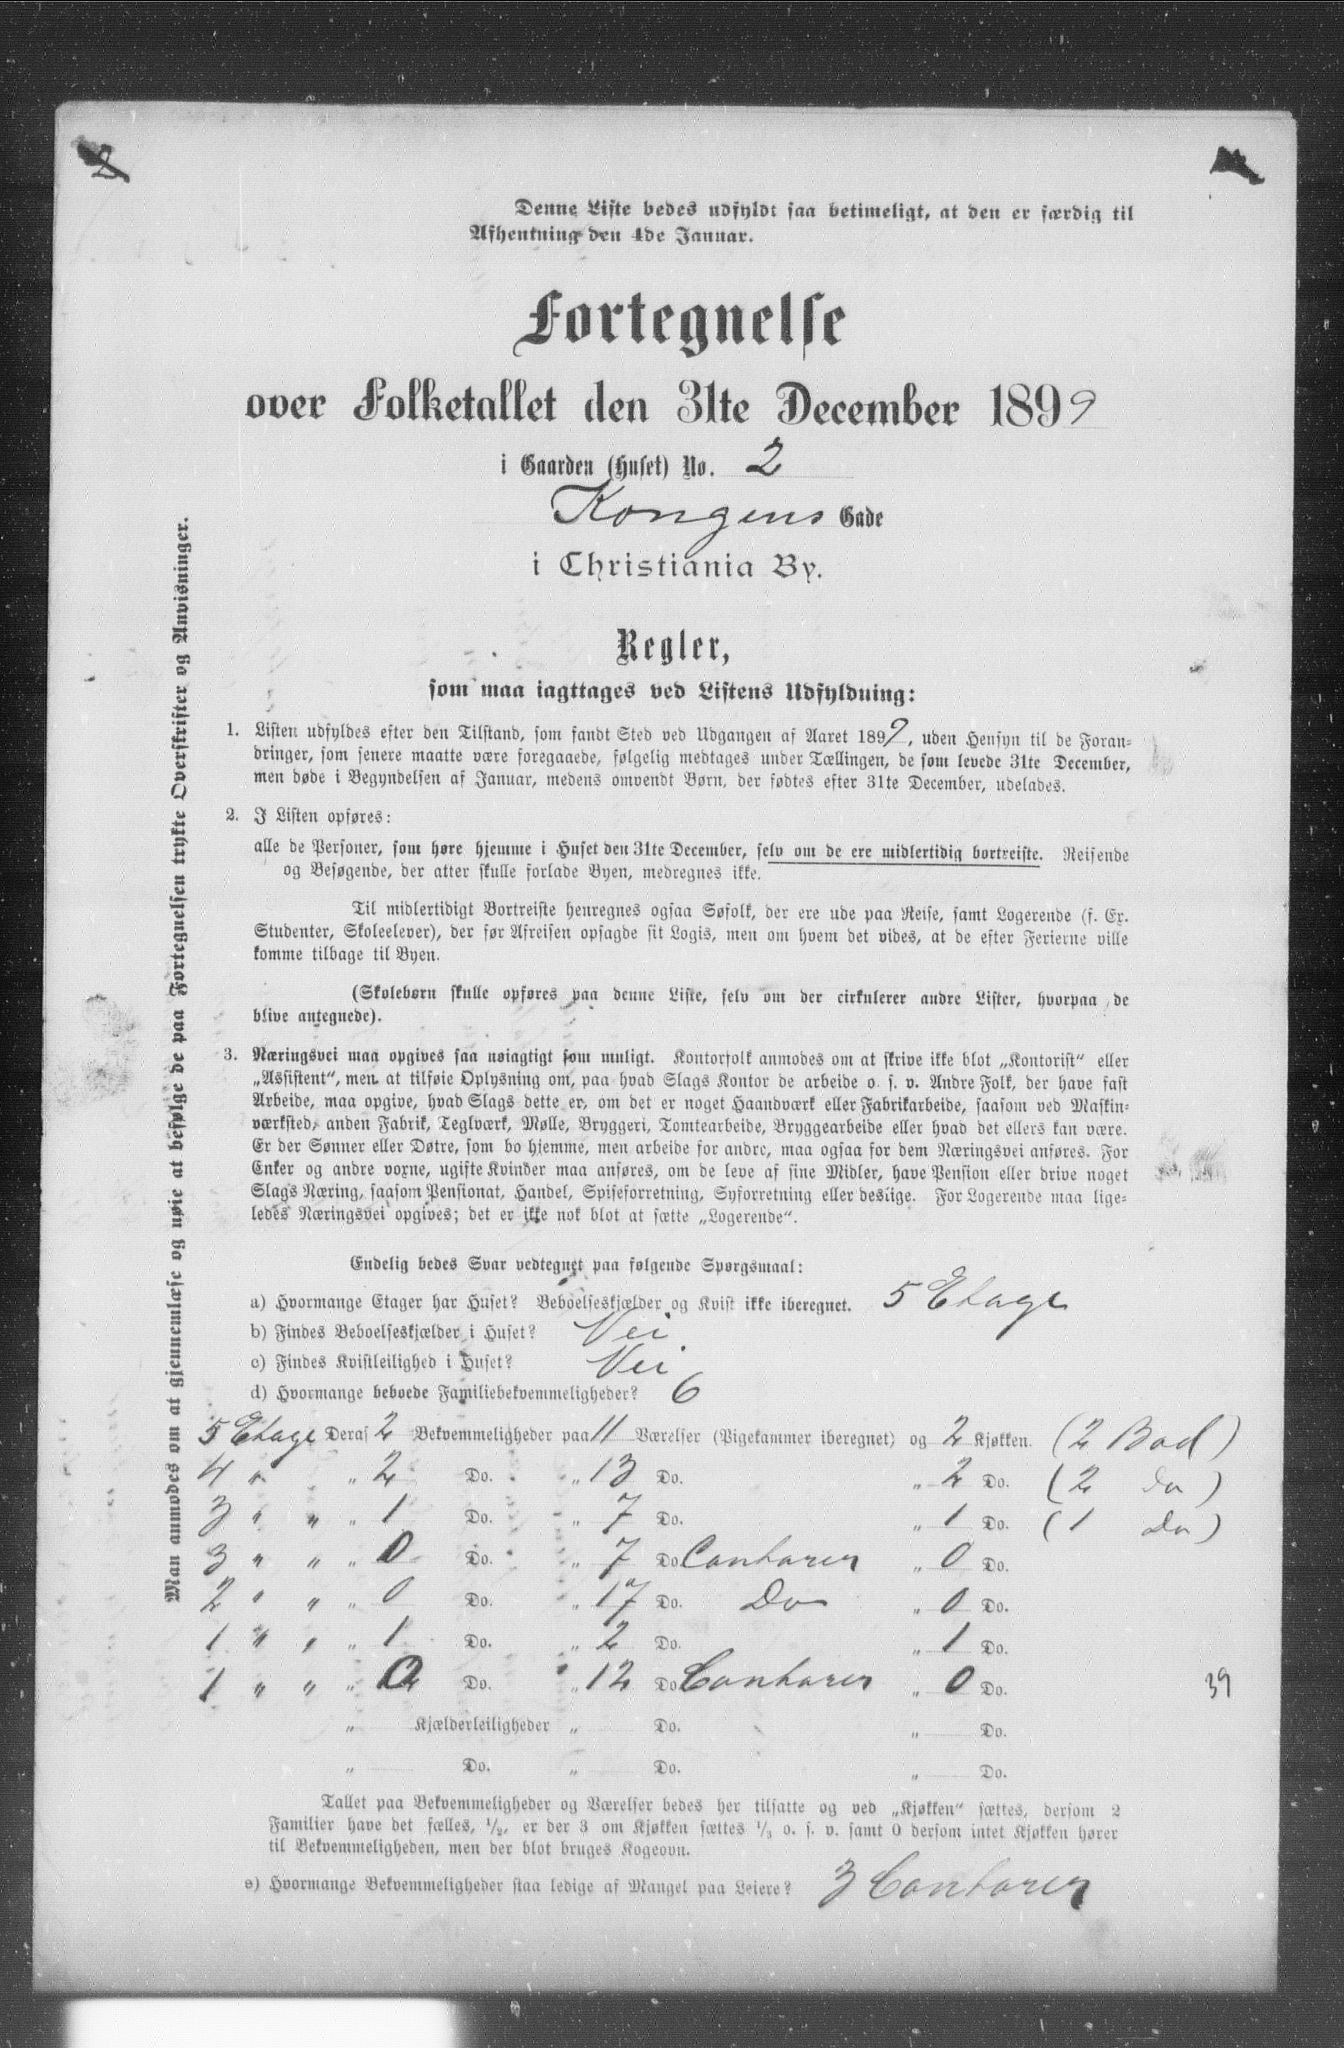 Denne Liste bedes udfyldt saa betimeligt, at den er færdig til
Afhentning den 4de Januar.
Fortegnelse
over Folketallet den 31te December 1899
i Gaarden (Huset) No. 2
Kongens Gade
i Christiania By.
Regler,
som maa iagttages ved Listens Udfyldning:
1. Listen udfyldes efter den Tilstand, som fandt Sted ved Udgangen af Aaret 1899, uden Hensyn til de Foran-
dringer, som senere maatte være foregaaede, følgelig medtages under Tællingen, de som levede 31te December,
men døde i Begyndelsen af Januar, medens omvendt Børn, der fødtes efter 31te December, udelades.
2. I Listen opføres:
alle de Personer, som høre hjemme i Huset den 31te December, selv om de ere midlertidig bortreiste. Reisende
og Besøgende, der atter skulle forlade Byen, medregnes ikke.
Til midlertidigt Bortreiste henregnes ogsaa Søfolk, der ere ude paa Reise, samt Logerende (f. Ex.
Studenter, Skoleelever), der før Afreisen opsagde sit Logis, men om hvem det vides, at de efter Ferierne ville
komme tilbage til Byen.
(Skolebørn skulle opføres paa denne Liste, selv om der cirkulerer andre Lister, hvorpaa de
blive antegnede).
3. Næringsvei maa opgives saa nøiagtigt som muligt. Kontorfolk anmodes om at skrive ikke blot „Kontorist“ eller
„Assistent“, men at tilføie Oplysning om, paa hvad Slags Kontor de arbeide o. s. v. Andre Folk, der have fast
Arbeide, maa opgive, hvad Slags dette er, om det er noget Haandværk eller Fabrikarbeide, saasom ved Maskin-
værksted, anden Fabrik, Teglværk, Mølle, Bryggeri, Tomtearbeide, Bryggearbeide eller hvad det ellers kan være.
Er der Sønner eller Døtre, som bo hjemme, men arbeide for andre, maa ogsaa for dem Næringsvei anføres. For
Enker og andre voxne, ugifte Kvinder maa anføres, om de leve af sine Midler, have Pension eller drive noget
Slags Næring, saasom Pensionat, Handel, Spiseforretning, Syforretning eller deslige. For Logerende maa lige-
ledes Næringsvei opgives; det er ikke nok blot at sætte „Logerende“.
Endelig bedes Svar vedtegnet paa følgende Spørgsmaal:
a) Hvormange Etager har Huset? Beboelseskjælder og Kvist ikke iberegnet. 5 Etage
b) Findes Beboelseskjælder i Huset? Nei
c) Findes Kvistleilighed i Huset? Nei
d) Hvormange beboede Familiebekvemmeligheder? 6
5 Etage Deraf 2 Bekvemmeligheder paa 11 Værelser (Pigekammer iberegnet) og 2 Kjøkken. (2 Bad)
4 " „ 2 Do. „ 13 Do. „ 2 Do. (2 Do)
3 " " „ 1 Do. „ 7 Do. „ 1 Do. (1 Do)
3 " " „ 0 Do. „ 7 Do Contorer „ 0 Do.
2 " " „ 0 Do. „ 17 Do. Do „ 0 Do.
1 " " „ 1 Do. „ 2 Do. „ 1 Do.
1 " " „ 0 Do. „ 12 Do Contorer „ 0 Do.
39
„ Kjælderleiligheder „ Do. „ Do.
„ Do. „ Do. „ Do.
Tallet paa Bekvemmeligheder og Værelser bedes her tilsatte og ved „Kjøkken“ sættes, dersom 2
Familier have det fælles, 1/2, er der 3 om Kjøkken sættes 1/3 o. s. v. samt 0 dersom intet Kjøkken hører
til Bekvemmeligheden, men der blot bruges Kogeovn.
e) Hvormange Bekvemmeligheder staa ledige af Mangel paa Leiere? 3 Contorer
Man anmodes om at gjennemlæse og nøie at befølge de paa Fortegnelsen trykte Overskrifter og Anvisninger.